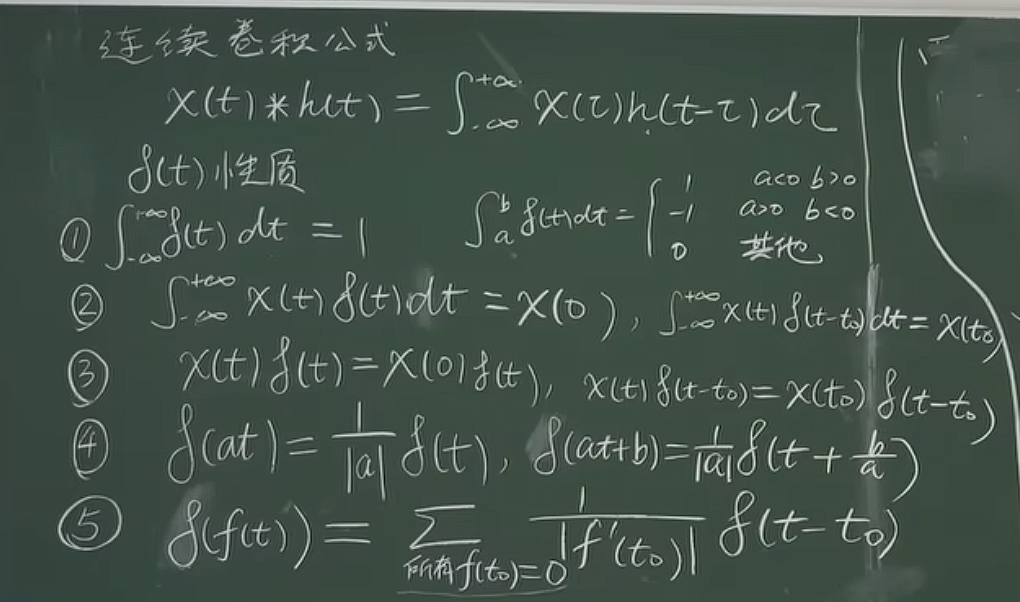 连续卷积公式
x(t)*h(t)=∫_{-∞}^{+∞} x(τ)h(t-τ)dτ
δ(t)性质
① ∫_{-∞}^{+∞} δ(t)dt=1 ∫_a^b δ(t)dt={1 a<0 b>0
-1 a>0 b<0
0 其他
② ∫_{-∞}^{+∞} x(t)δ(t)dt=x(0), ∫_{-∞}^{+∞} x(t)δ(t-t₀)dt=x(t₀)
③ x(t)δ(t)=x(0)δ(t), x(t)δ(t-t₀)=x(t₀)δ(t-t₀)
④ δ(at)=1/|a| δ(t), δ(at+b)=1/|a| δ(t+b/a)
⑤ δ(f(t))=∑_{所有f(t₀)=0} 1/|f'(t₀)| δ(t-t₀)